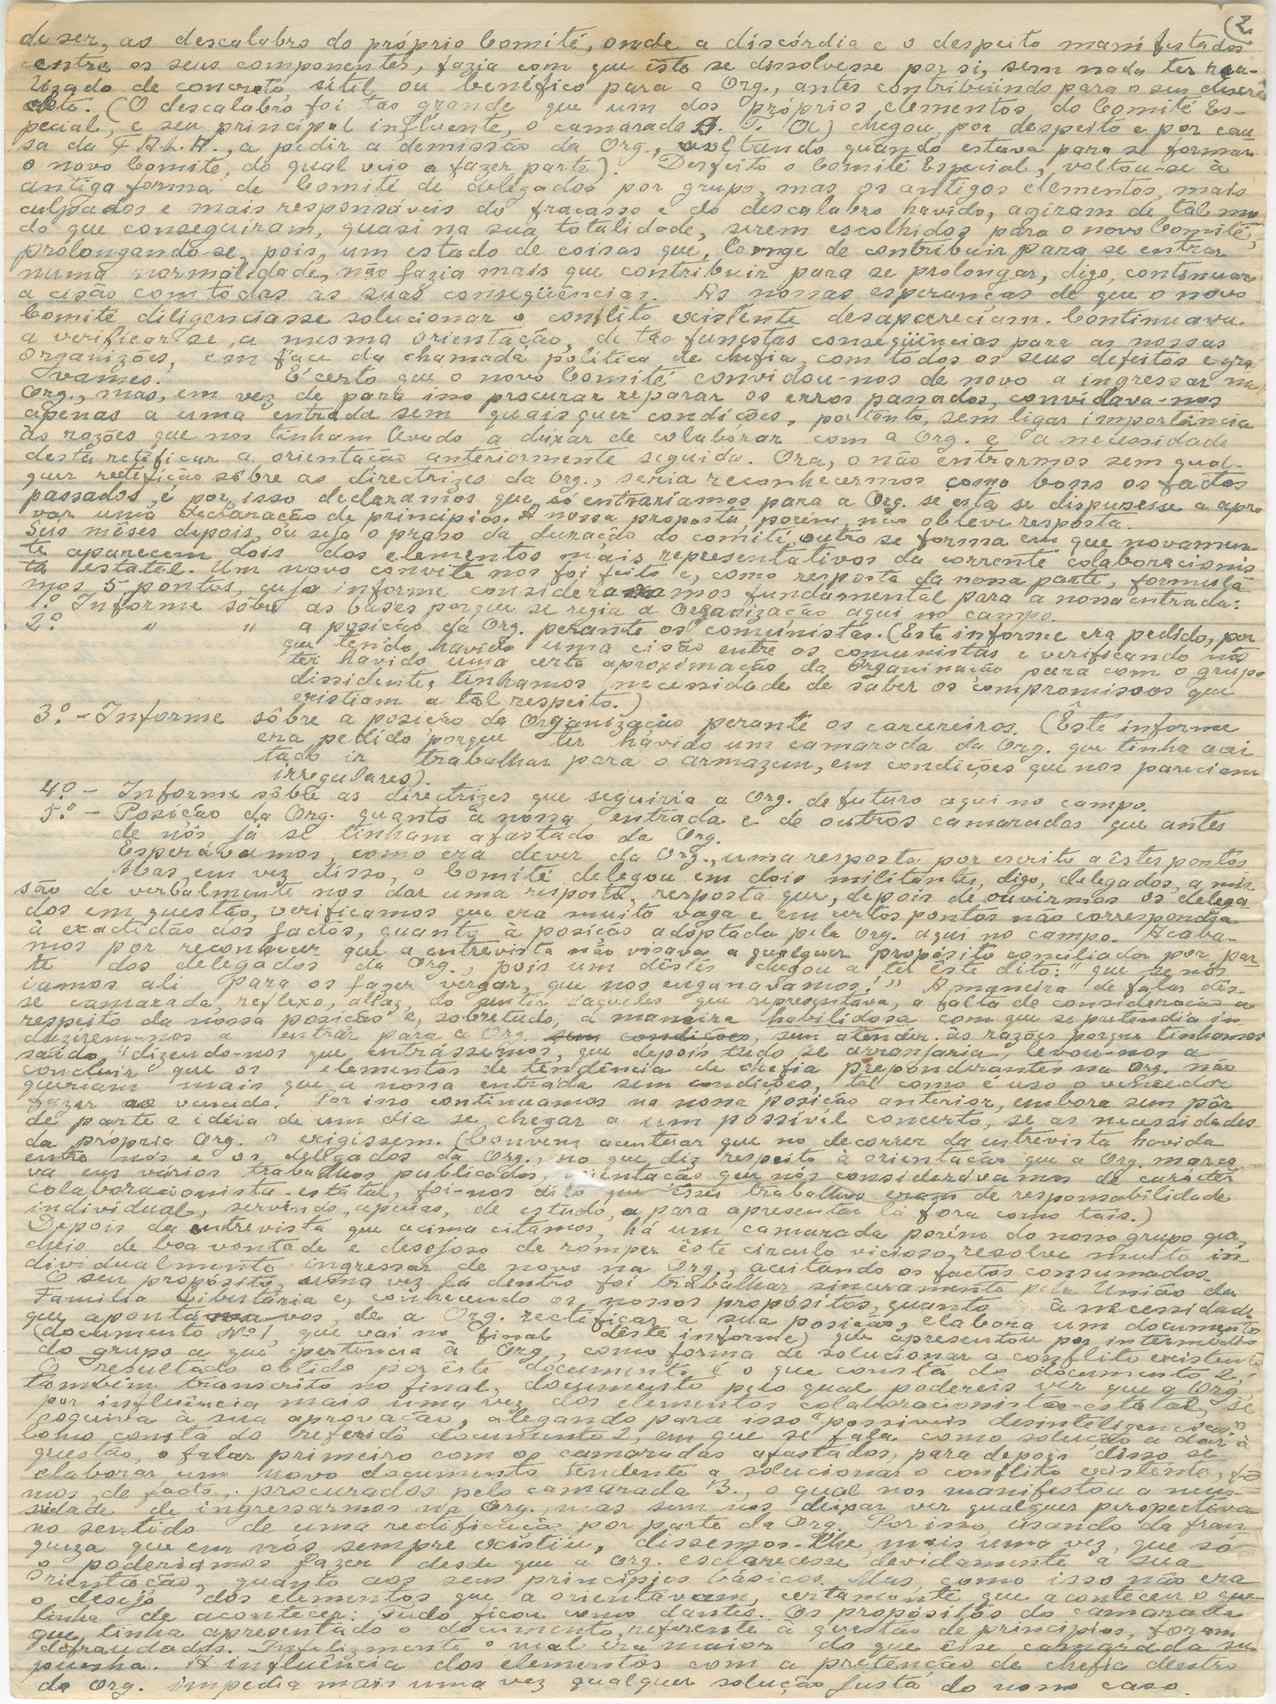 (2
de ser, ao descalabro do próprio Comité, onde a discórdia e o despeito manifestados
entre os seus componentes, fazia com que êste se dissolvesse por si, sem nada ter rea-
lizado de concreto, útil ou benéfico para a Org., antes contribuindo para o seu descré
dito. (O descalabro foi tão grande que um dos próprios elementos do Comité Es-
pecial, e seu principal influente, o camarada A. T. A) chegou, por despeito e por cau
sa da F.A.L.A., a pedir a demissão da Org., voltando quando estava para se formar
o novo Comité, do qual veio a fazer parte). Desfeito o Comité Especial, voltou-se à
antiga forma de Comité de delegados por grupo, mas os antigos elementos, mais
culpados e mais responsáveis do fracasso e do descalabro havido, agiram de tal mo
do que conseguiram, quasi na sua totalidade, serem escolhidos para o novo Comité,
prolongando-se, pois, um estado de coisas que, longe de contribuir para se entrar
numa normalidade, não fazia mais que contribuir para se prolongar, digo, continuar
a cisão com todas as suas conseqüências. As nossas esperanças de que o novo
Comité diligenciasse solucionar o conflito existente desapareciam. Continuava
a verificar-se a mesma orientação, de tão funestas conseqüências para as nossas
organizões, em face da chamada política de chefia, com todos os seus defeitos e gra
vames. É certo que o novo Comité convidou-nos de novo a ingressar na
Org., mas, em vez de para isso procurar reparar os erros passados, convidava-nos
apenas a uma entrada sem quaisquer condições, portanto, sem ligar importância
às razões que nos tinham levado a deixar de colaborar com a Org. e a necessidade
desta retificar a orientação anteriormente seguida. Ora, o não entrarmos sem qual-
quer retificação sôbre as directrizes da Org., seria reconhecermos como bons os factos
passados, é por isso declaramos que só entraríamos para a Org. se esta se dispusesse a apro
var uma declaração de princípios. A nossa proposta, porém, não obteve resposta.
Seis mêses depois, ou seja o praso da duração do comité, outro se forma em que novamen-
te aparecem dois dos elementos mais representativos da corrente colaboracionis
ta estatal. Um novo convite nos foi feito e, como resposta da nossa parte, formulá
mos 5 pontos, cujo informe considerávamos fundamental para a nossa entrada:
1.º Informe sôbre as bases porque se regia a Organização aqui no campo.
2.º " " a posição da Org. perante os comunistas. (Este informe era pedido, por
que tendo havido uma cisão entre os comunistas e verificando nós
ter havido uma certa aproximação da Organização para com o grupo
dissidente, tinhamos necessidade de saber os compromissos que
existiam a tal respeito.)
3.º - Informe sôbre a posição da Organização perante os carcereiros. (Êste informe
era pedido porque ter havido um camarada da Org. que tinha acei
tado ir trabalhar para o armazem, em condições que nos pareciam
irregulares).
4.º - Informe sôbre as directrizes que seguiria a Org. de futuro aqui no campo.
5.º - Posição da Org. quanto à nossa entrada e de outros camaradas que antes
de nós já se tinham afastado da Org.
Esperávamos, como era dever da Org., uma resposta por escrito a êstes pontos
Mas, em vez disso, o Comité delegou em dois militantes, digo, delegados, a mis
são de verbalmente nos dar uma resposta, resposta que, depois de ouvirmos os delega
dos em questão, verificamos que era muito vaga e em certos pontos não correspondia
à exactidão dos factos, quanto à posição adoptada pela Org. aqui no campo. Acaba-
mos por reconhecer que a entrevista não visava a qualquer propósito conciliador por par
te dos delegados da Org., pois um dêstes chegou a ter êste dito: "que se nós
iamos ali para os fazer vergar, que nos enganavamos." A maneira de falar dês-
se camarada, reflexo, aliaz, do sentir daqueles que representava, a falta de consideração a
respeito da nossa posição e, sobretudo, a maneira habilidosa com que se pretendia in
duzirem-nos a entrar para a Org. sem condições, sem atender às razões porque tinhamos
saído, dizendo-nos que entrássemos, que depois tudo se arranjaria, levou-nos a
concluir que os elementos de tendência de chefia preponderantes na Org. não
queriam mais que a nossa entrada sem condições, tal como é uso o vencedor
fazer ao vencido. Por isso continuamos na nossa posição anterior, embora sem pôr
de parte a idéia de um dia se chegar a um possível concerto, se as necessidades
da própria Org. o exigissem. (Convem acentuar que no decorrer da entrevista havida
entre nós e os delegados da Org., no que diz respeito à orientação que a Org. marca
va em vários trabalhos publicados, orientação que nós considerávamos de carácter
colaboracionista-estatal, foi-nos dito que esses trabalhos eram de responsabilidade
individual, servindo, apenas, de estudo, e para apresentar lá fora como tais.)
Depois da entrevista que acima citamos, há um camarada porém do nosso grupo que,
cheio de boa vontade e desejoso de romper êste circulo vicioso, resolve muito in
dividualmente ingressar de novo na Org., aceitando os factos consumados.
O seu propósito, uma vez lá dentro foi trabalhar sinceramente pela União da
Família Libertária e, conhecendo os nossos propósitos, quanto à necessidade
que apontávamos, de a Org. rectificar a sua posição, elabora um documento
(documento Nº 1 que vai no final dêste informe) que apresentou por intermédio
do grupo a que pertencia à Org., como forma de solucionar o conflito existente
O resultado obtido por êste documento é o que consta do documento 2,
também transcrito no final, documento pelo qual podereis ver que a Org.,
por influência mais uma vez dos elementos colaboracionistas-estatal, se
esquiva à sua aprovação, alegando para isso "possíveis desinteligencias".
Como consta do referido documento 2, em que se fala como solução a dar à
questão, o falar primeiro com os camaradas afastados, para depois disso se
elaborar um novo documento tendente a solucionar o conflito existente, fo
mos, de facto, procurados pelo camarada B., o qual nos manifestou a neces-
sidade de ingressarmos na Org., mas sem nos deixar ver qualquer perspectiva
no sentido de uma rectificação por parte da Org. Por isso, usando da fran
queza que em nós sempre existiu, dissemos-lhe mais uma vez, que só
o poderiamos fazer desde que a Org. esclarecesse devidamente a sua
orientação, quanto aos seus princípios básicos. Mas, como isso não era
o desejo dos elementos que a orientavam, certamente que aconteceu o que
tinha de acontecer: tudo ficou como dantes. Os propósitos do camarada
que tinha apresentado o documento, referente à questão de princípios, foram
defraudados. Infelizmente o mal era maior do que êsse camarada su
punha. A influência dos elementos com a pretenção de chefia dentro
da Org. impedia mais uma vez qualquer solução justa do nosso caso.